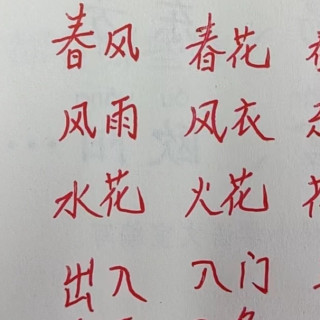 春风 春花
风雨 风衣
水花 火花
出入 入门